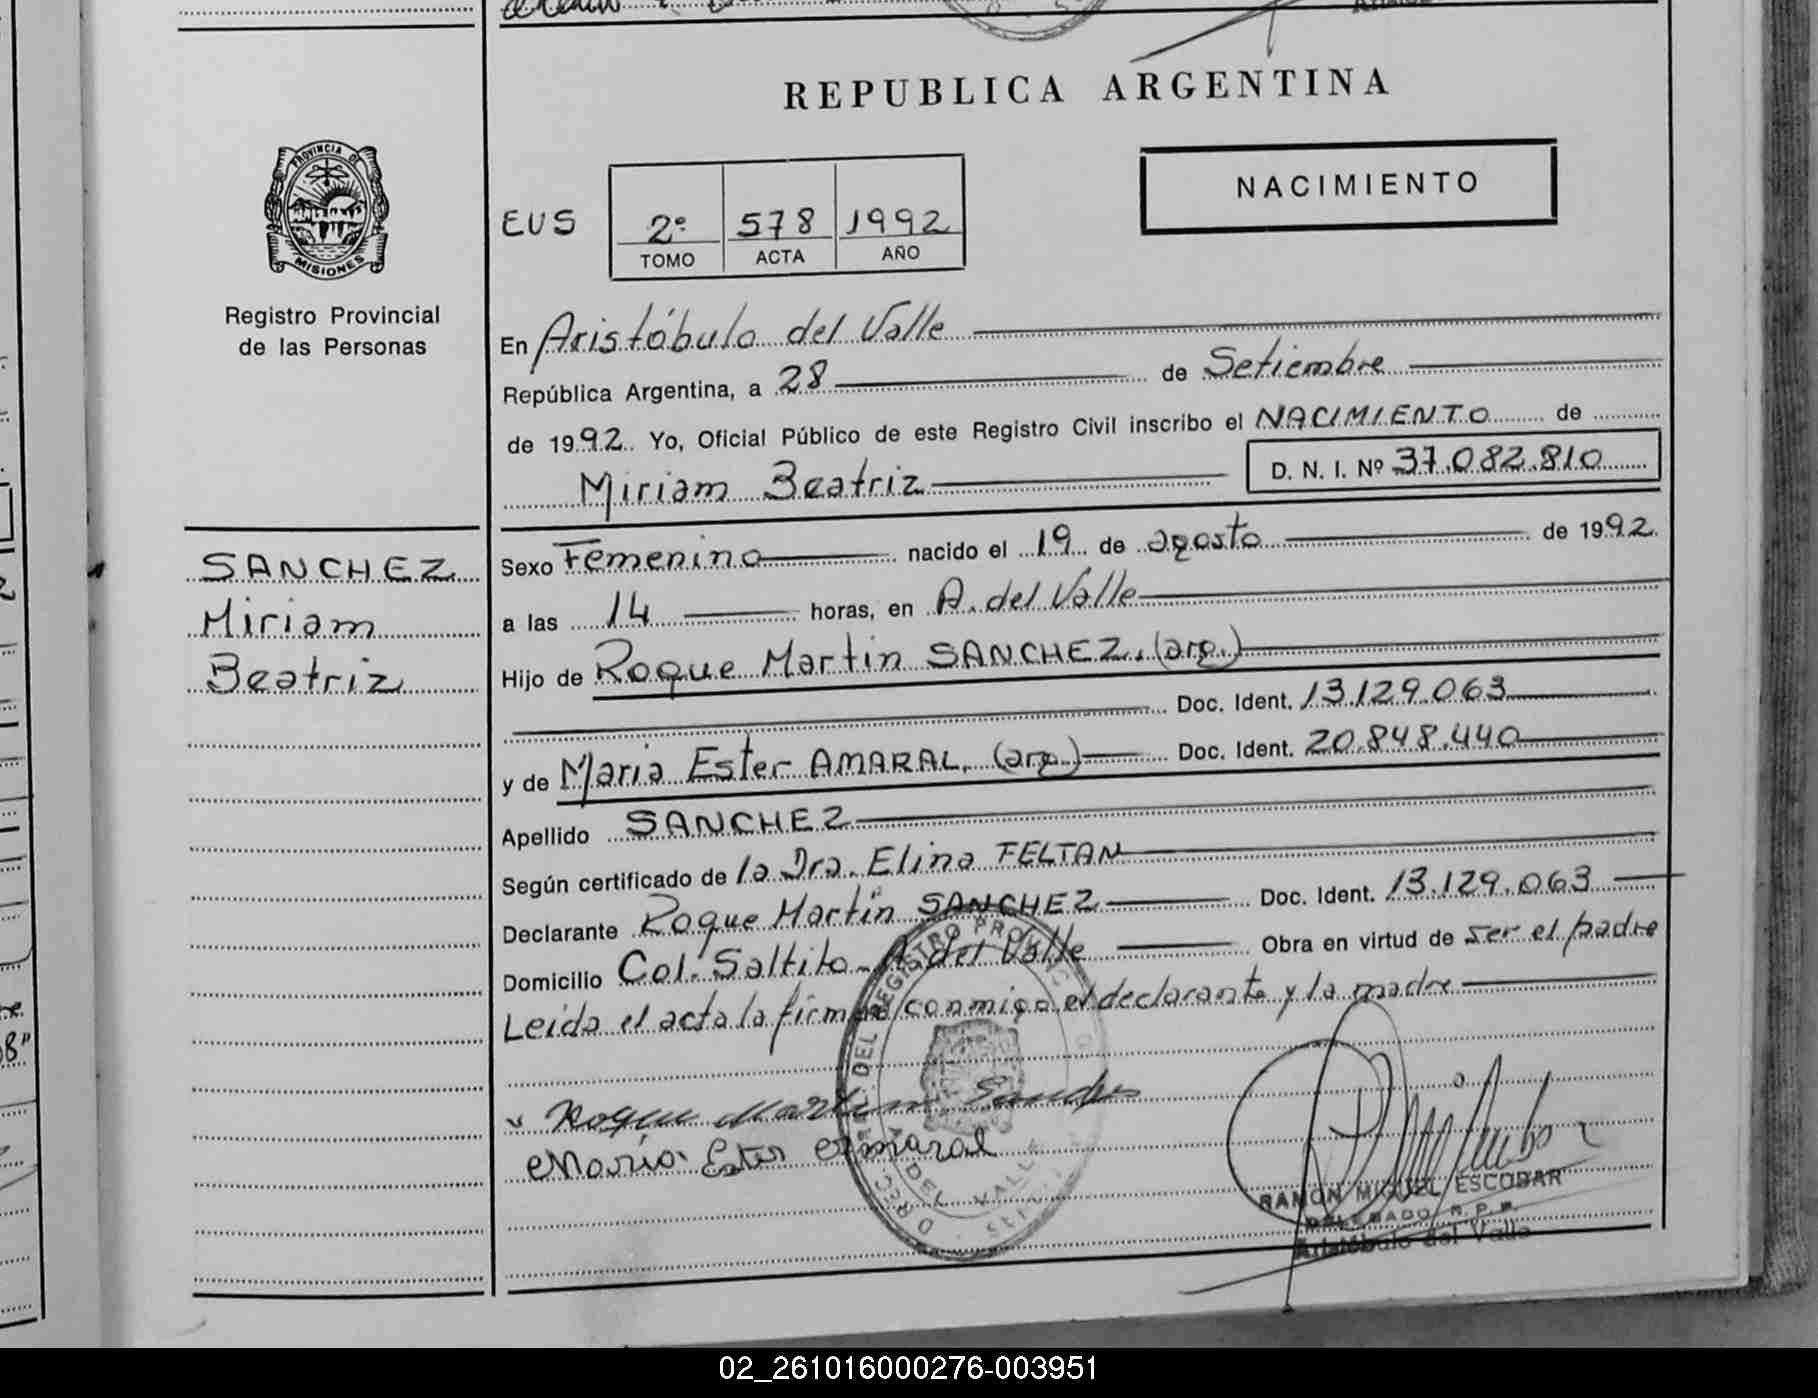 REPUBLICA ARGENTINA
PROVINCIA DE
MISIONES
Registro Provincial
de las Personas
NACIMIENTO
EUS
2º 578 1992
TOMO ACTA AÑO
En Aristóbulo del Valle
República Argentina, a 28 de Setiembre
de 1992. Yo, Oficial Público de este Registro Civil inscribo el NACIMIENTO de
Miriam Beatriz D. N. I. Nº 37.082.810
SANCHEZ
Miriam
Beatriz
Sexo Femenino nacido el 19 de agosto de 1992.
a las 14 horas, en A. del Valle
Hijo de Roque Martin SANCHEZ. (arg.)
Doc. Ident. 13.129.063
y de Maria Ester AMARAL. (arg.) Doc. Ident. 20.848.440
Apellido SANCHEZ
Según certificado de la Dra. Elina FELTAN
Declarante Roque Martin SANCHEZ Doc. Ident. 13.129.063
Domicilio Col. Saltito - A. del Valle Obra en virtud de ser el padre
Leida el acta la firman conmigo el declarante y la madre
Roque Martin Sanches
Maria Ester Amaral
DEL REGISTRO
DEL VALLE
RAMON MIGUEL ESCOBAR
DELEGADO R. P. P.
Aristóbulo del Valle
02_261016000276-003951